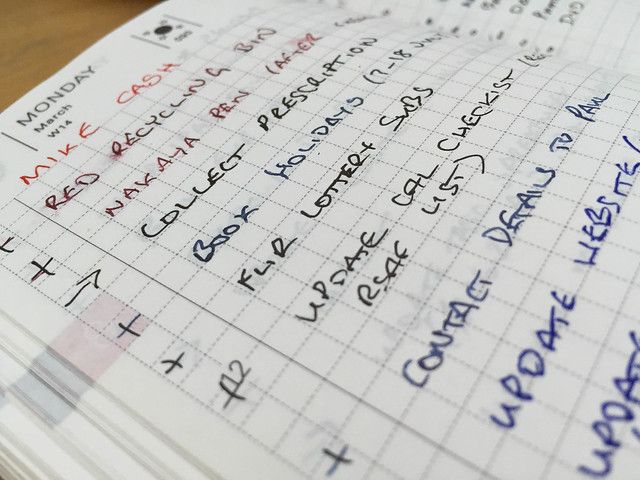 MONDAY
March
W14
MIKE CASH
RED RECYCLING BIN
NAKAYA PEN (AFTER
COLLECT PRESCRIPTION
BOOK HOLIDAYS
FLIR LOTTERY SUBS
UPDATE CAL CHECKIST
LIST)
CONTACT DETAILS TO PAUL
UPDATE WEBSITE (
UPDATE